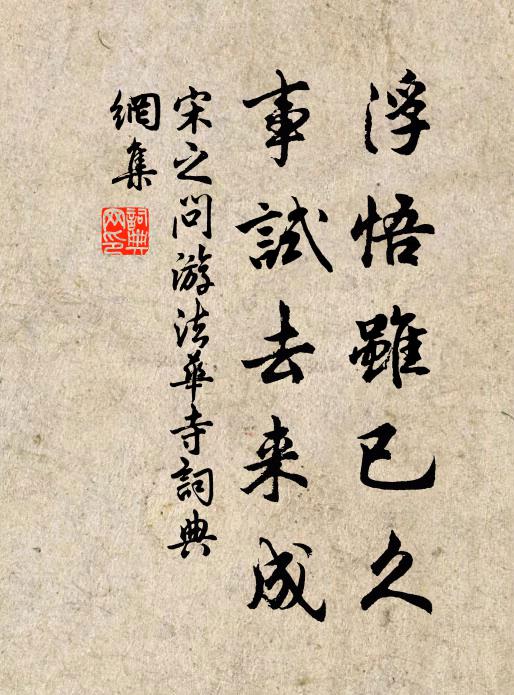 浮悟雖已久
事試去来成
宋之问游法華寺詞典
網集
詞典
网印